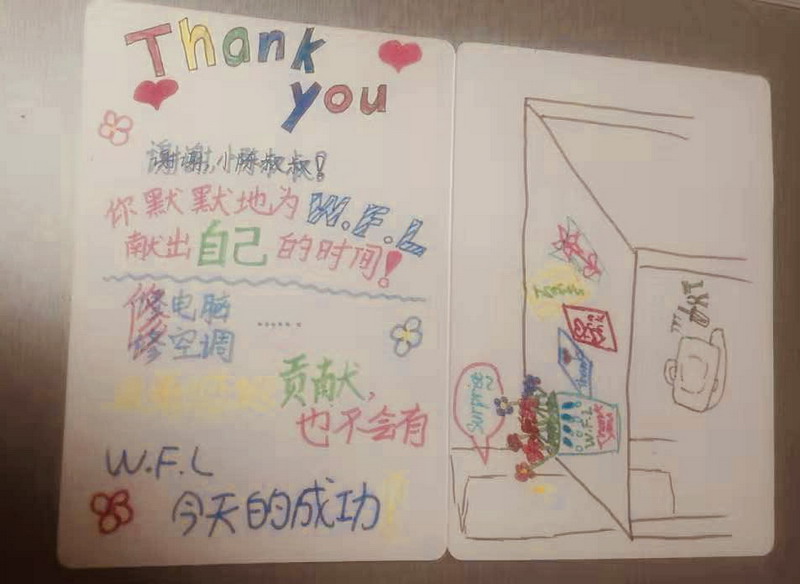 Thank
you
谢谢,小陈叔叔!
你默默地为W.F.L
献出自己的时间!
修电脑
修空调
......
贡献,
也不会有
W.F.L
今天的成功!
Surprise~
W.F.L